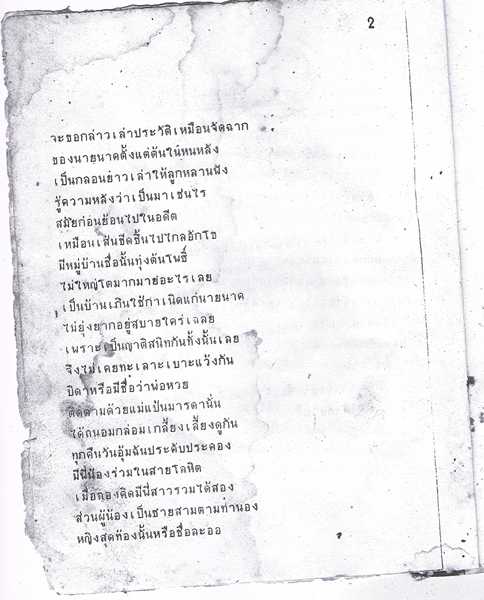 2
จะขอกล่าวเล่าประวัติเหมือนจัดฉาก
ของนายนาคตั้งแต่ต้นในหนหลัง
เป็นกลอนข่าวเล่าให้ลูกหลานฟัง
รู้ความหลังว่าเป็นมาเช่นไร
สมัยก่อนย้อนไปในอดีต
เหมือนเส้นขีดขึ้นไปไกลอักโข
มีหมู่บ้านชื่อนั้นทุ่งต้นโพธิ์
ไม่ใหญ่โตมากมายอะไรเลย
เป็นบ้านเกิดใช้กำเนิดแก่นายนาค
ไม่ยุ่งยากอยู่สบายใคร่เฉลย
เพราะเป็นญาติสนิทกันทั้งนั้นเลย
จึงไม่เคยทะเลาะเบาะแว้งกัน
บิดาหรือมีชื่อว่าพ่อหวย
ติดตามด้วยแม่แป้นมารดานั่น
ได้ถนอมกล่อมเกลี้ยงเลี้ยงดูกัน
ทุกคืนวันอุ้มฉันประคับประคอง
มีพี่น้องร่วมในสายโลหิต
เมื่อลองคิดมีพี่สาวรวมได้สอง
ส่วนผู้น้องเป็นชายสามตามทำนอง
หญิงสุดท้องนั้นหรือชื่อละออ